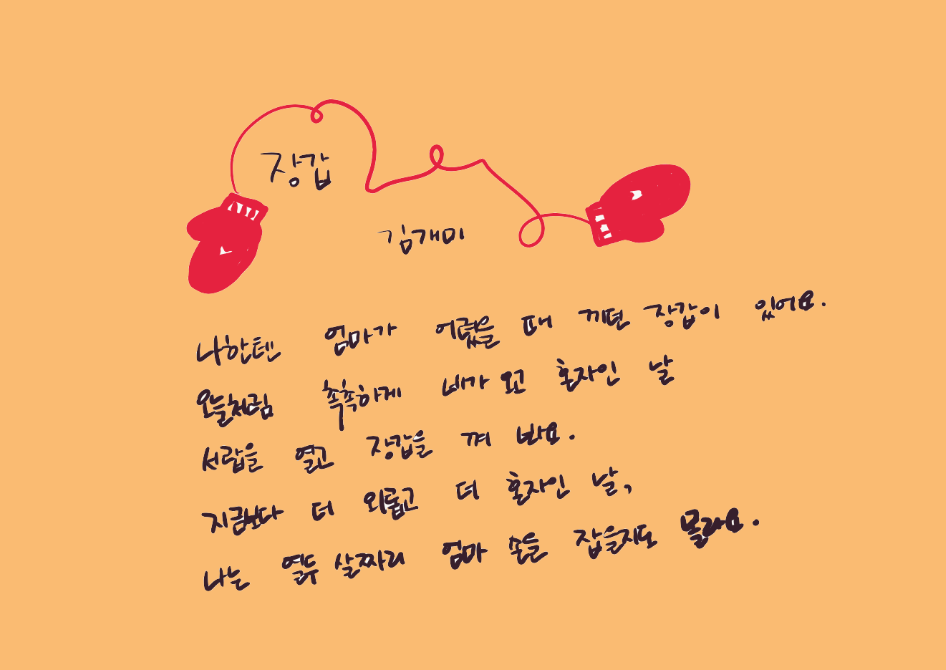 장갑
김개미
나한텐 엄마가 어렸을 때 끼던 장갑이 있어요.
오늘처럼 촉촉하게 비가 오고 혼자인 날
서랍을 열고 장갑을 껴 봐요.
지금보다 더 외롭고 더 혼자인 날,
나는 열두 살짜리 엄마 손을 잡을지도 몰라요.